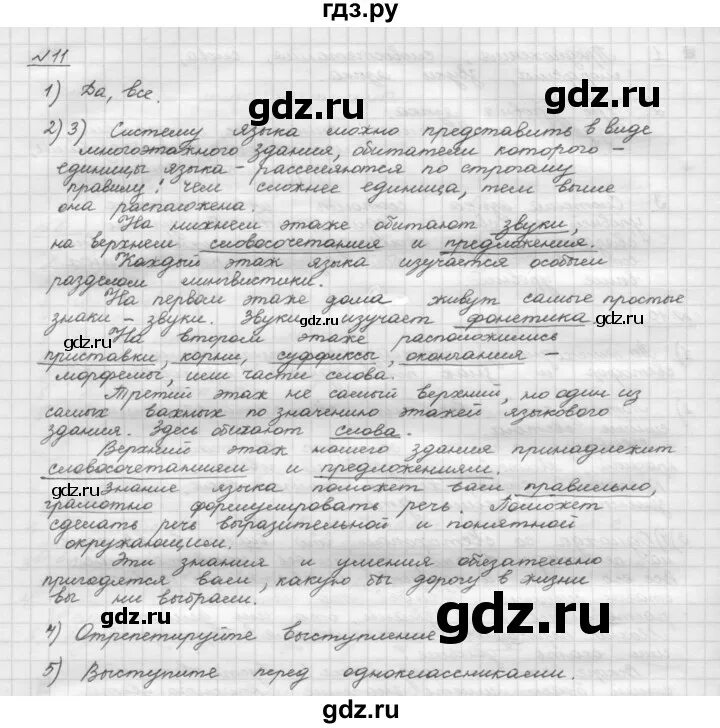 гдз.ру
№11
1) Да, все.
2) 3) Систему языка можно представить в виде
многоэтажного здания, обитатели которого -
единицы языка - расселяются по строгому
правилу: чем сложнее единица, тем выше
она расположена.
На нижнем этаже обитают звуки,
на верхнем словосочетания и предложения.
Каждый этаж языка изучается особым
разделом лингвистики.
На первом этаже дома живут самые простые
знаки - звуки. Звуки изучает фонетика
На втором этаже расположились
приставки, корни, суффиксы, окончания -
морфемы, или части слова.
Третий этаж не самый верхний, но один из
самых важных по значению этажей языкового
здания. Здесь обитают слова.
Верхний этаж нашего здания принадлежит
словосочетаниям и предложениям.
Знание языка поможет вам правильно,
грамотно формулировать речь. Поможет
сделать речь выразительной и понятной
окружающим.
Эти знания и умения обязательно
пригодятся вам, какую бы дорогу в жизни
вы ни выбрали.
4) Отрепетируйте выступление
5) Выступите перед одноклассниками.
gdz.ru
gdz.ru
gdz.ru
gdz.ru
gdz.ru
gdz.ru
gdz.ru
gdz.ru
gdz.ru
gdz.ru
gdz.ru
gdz.ru
gdz.ru